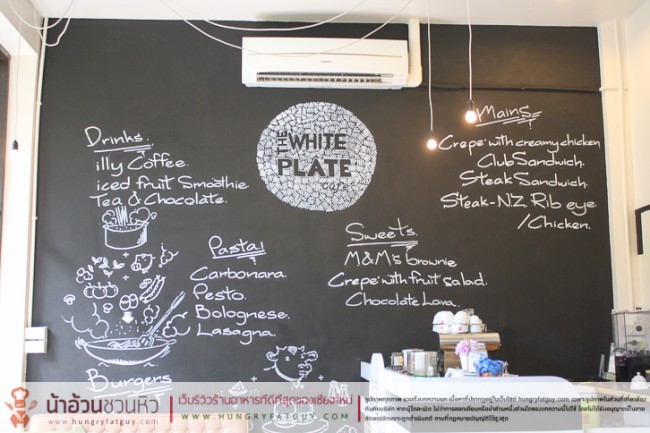 THE
WHITE
PLATE
cafe
Drinks.
illy Coffee.
iced fruit Smoothie
Tea & Chocolate.
Mains
Crepe with creamy chicken
Club Sandwich.
Steak Sandwich.
Steak-NZ. Rib eye
/Chicken.
Pasta
Carbonara.
Pesto.
Bolognese.
Lasagna.
Sweets.
M&M's brownie
Crepe with fruit salad.
Chocolate Lava.
Burgers
น้าอ้วนชวนหิว
hungryfatguy.com
เว็บรีวิวร้านอาหารที่ดีที่สุดของเชียงใหม่
WWW.HUNGRYFATGUY.COM